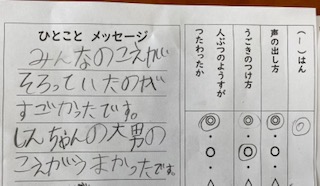 ひとこと メッセージ
みんなのこえが
そろっていたのが
すごかったです。
しんちゃんの大男の
こえがうまかったです。
(一)はん
◎
声の出し方
◎
○
△
うごきのつけ方
◎
○
△
人ぶつのようすが
つたわったか
◎
○
△